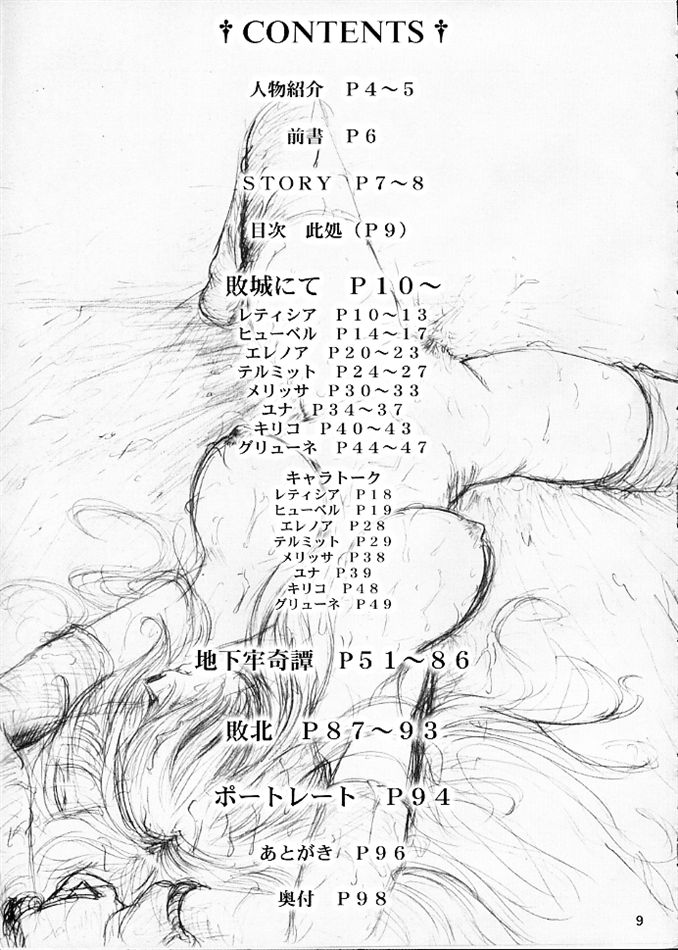 †CONTENTS†
人物紹介　Ｐ４～５
前書　Ｐ６
ＳＴＯＲＹ　Ｐ７～８
目次　此処（Ｐ９）
敗城にて　Ｐ１０～
レティシア　Ｐ１０～１３
ヒューベル　Ｐ１４～１７
エレノア　Ｐ２０～２３
テルミット　Ｐ２４～２７
メリッサ　Ｐ３０～３３
ユナ　Ｐ３４～３７
キリコ　Ｐ４０～４３
グリューネ　Ｐ４４～４７
キャラトーク
レティシア　Ｐ１８
ヒューベル　Ｐ１９
エレノア　Ｐ２８
テルミット　Ｐ２９
メリッサ　Ｐ３８
ユナ　Ｐ３９
キリコ　Ｐ４８
グリューネ　Ｐ４９
地下牢奇譚　Ｐ５１～８６
敗北　Ｐ８７～９３
ポートレート　Ｐ９４
あとがき　Ｐ９６
奥付　Ｐ９８
9